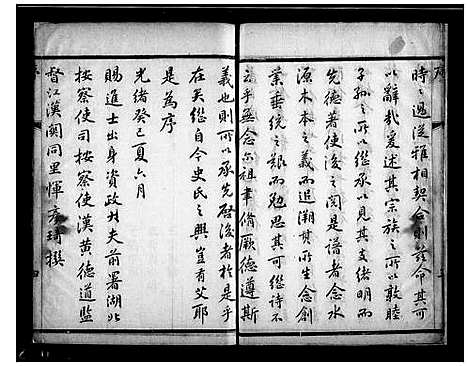 時之過從雅相契合創茲命其可
以辭哉爰述其宗族之所以敦睦
子孫之所以繼承以見其支緒明而
先德著使後之閱是譜者念水
源木本之義而追溯其所生念創
業垂統之艱而勉思其可繼詩不
云乎無念爾祖聿脩厥德遵斯
義也則所以承先啟後者於是乎
在矣繼自今史氏之興豈有艾耶
是為序
光緒癸巳夏六月
賜進士出身資政大夫前署湖北
按察使司按察使漢黃德道監
督江漢關同里惲彥琦撰